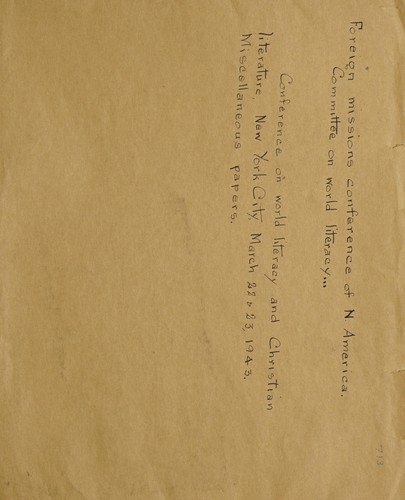 Foreign missions conference of N America.
Committee on world literacy...
Conference on world literacy and Christian
literature, New York City, March 22 & 23, 1943.
Miscellaneous papers.